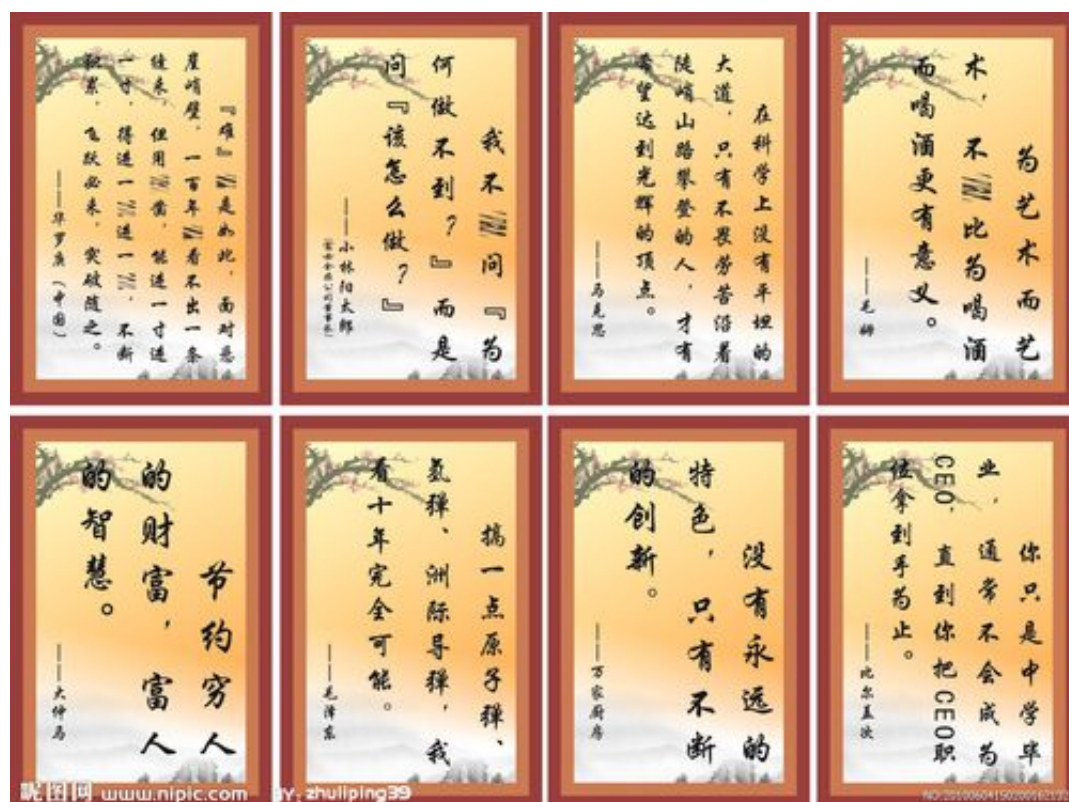 『难』是如此，面对悬
崖峭壁，一百年看不出一条
缝来，但用凿，能进一寸进
一寸，得进一进一，不断
积累，飞跃必来，突破随之。
——华罗庚（中国）
我不问『为
何做不到？』而是
问『该怎么做？』
——小林阳太郎
在科学上没有平坦的
大道，只有不畏劳苦沿着
陡峭山路攀登的人，才有
希望达到光辉的顶点。
——马克思
为艺术而艺
术，不比为喝酒
而喝酒更有意义。
——毛姆
节约穷人
的财富，富人
的智慧。
——大仲马
搞一点原子弹、
氢弹、洲际导弹，我
看十年完全可能。
——毛泽东
没有永远的
特色，只有不断
的创新。
——万家厨房
你只是中学毕
业，通常不会成为
CEO，直到你把CEO职
位拿到手为止。
——比尔盖茨
昵图网 www.nipic.com
BY: zhuliping39